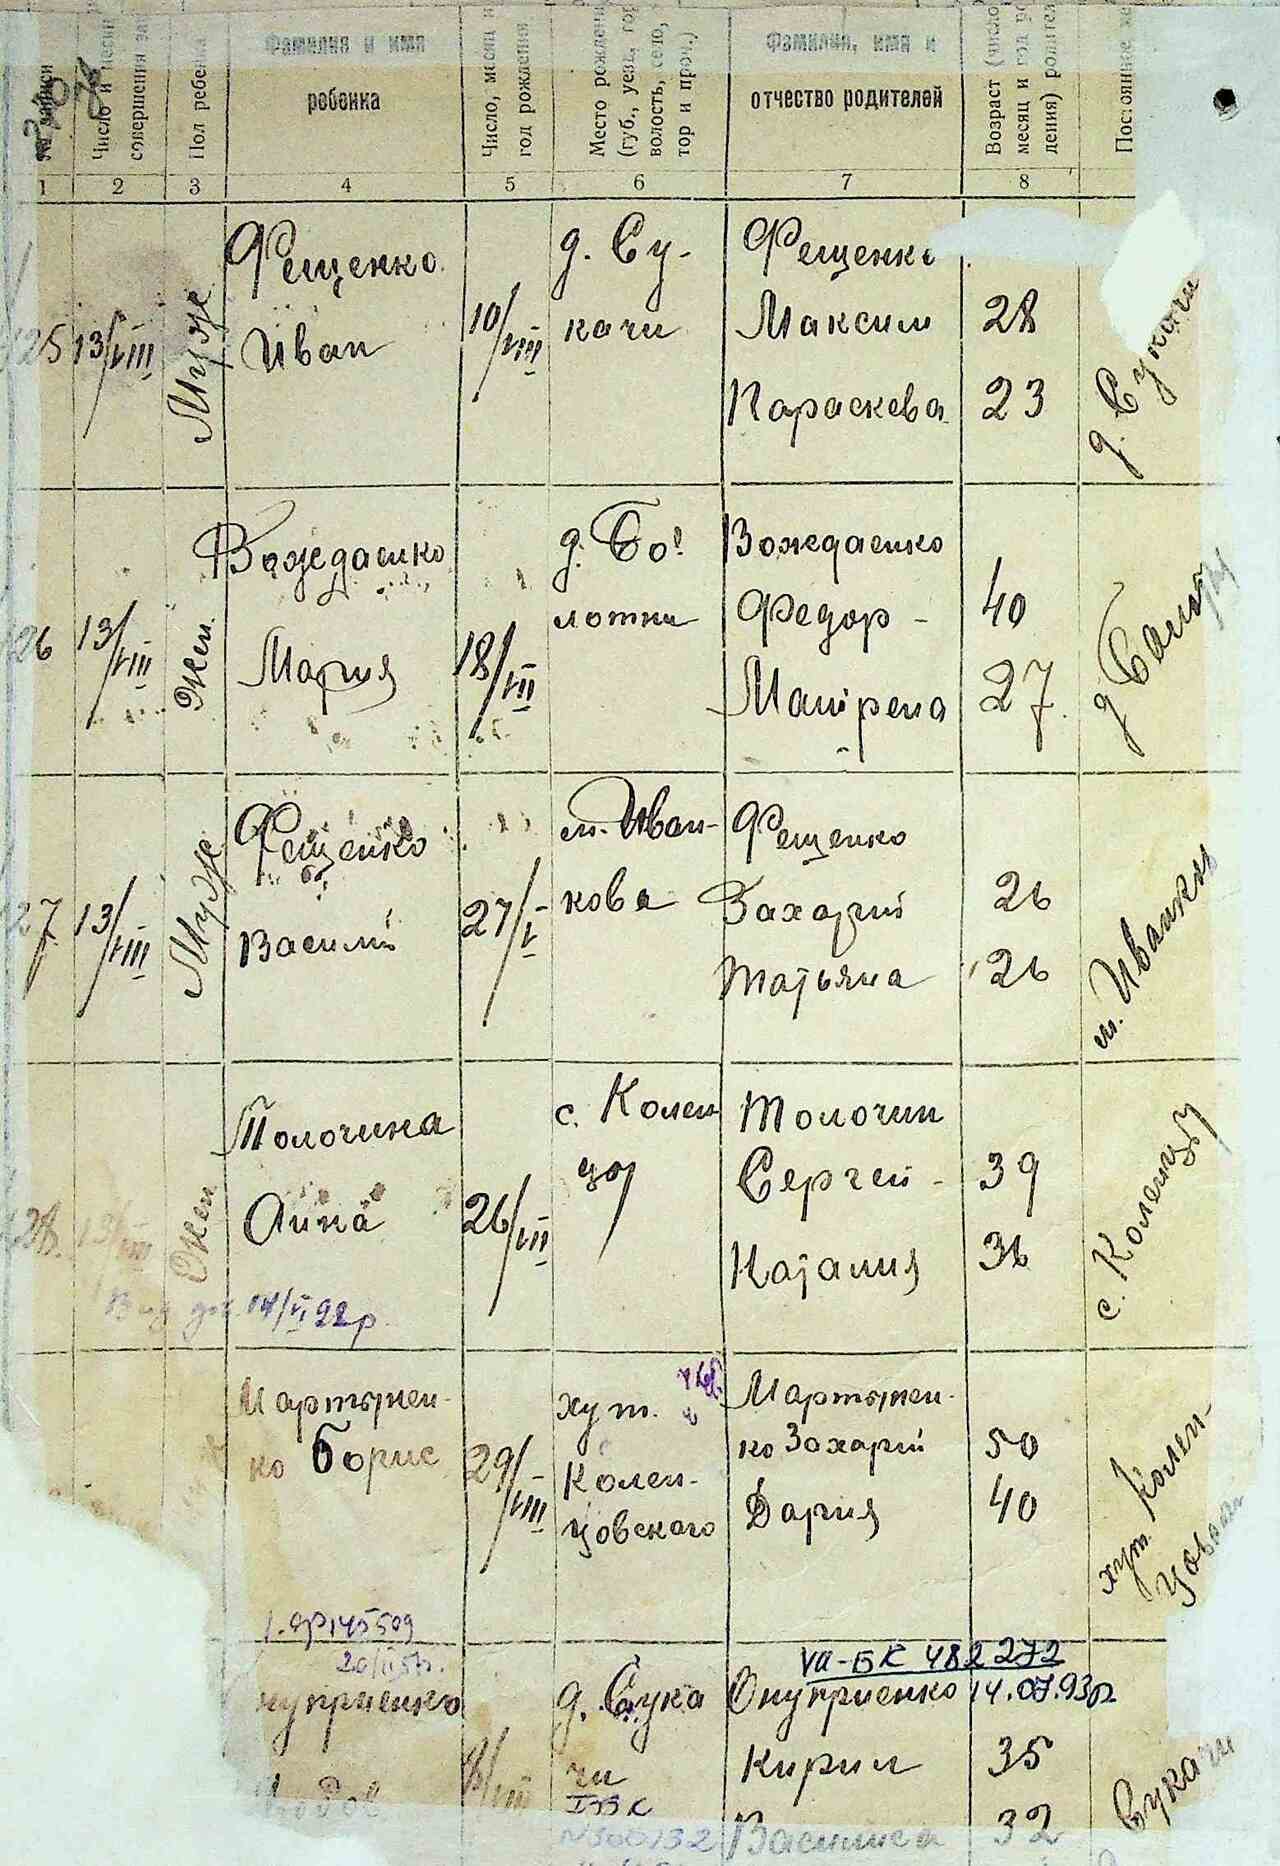 № записи
Число и месяц
совершения за
Пол ребенка
Фамилия и имя
ребенка
Число, месяц и
год рождения
Место рождения
(губ., уезд, гор
волость, село,
тор и проч.)
Фамилия, имя и
отчество родителей
Возраст (число
месяц и год ро
дения) родител
Постоянное
1 2 3 4 5 6 7 8
25
13/VIII
Муж
Фещенко
Иван
10/VIII
д. Су-
качи
Фещенко
Максим
Параскева
28
23
д. Сукачи
26
13/VIII
Жен.
Вождаенко
Мария
18/VII
д. Бо
лотни
Вождаенко
Федор -
Матрена
40
27
д
27
13/VIII
Муж
Фещенко
Василий
27/V
м. Иван-
кова
Фещенко
Захарий
Татьяна
26
26
м. Иванков
28.
13/VIII
Жен
Толочина
Анна
26/VII
с. Колен
цы
Толочин
Сергей -
Наталия
39
36
с. Коленцы
14/VI 92р.
Мартынен-
ко Борис
29/VIII
хут.
Колен-
цовского
Мартынен-
ко Захарий
Дария
50
40
хут. Колен-
145509
20/II 57г.
VII-БК 482272
14.07.93р.
нуприенко
8/VIII
д. Сука
чи
Онуприенко
Кирил
Василиса
35
32
Сукачи